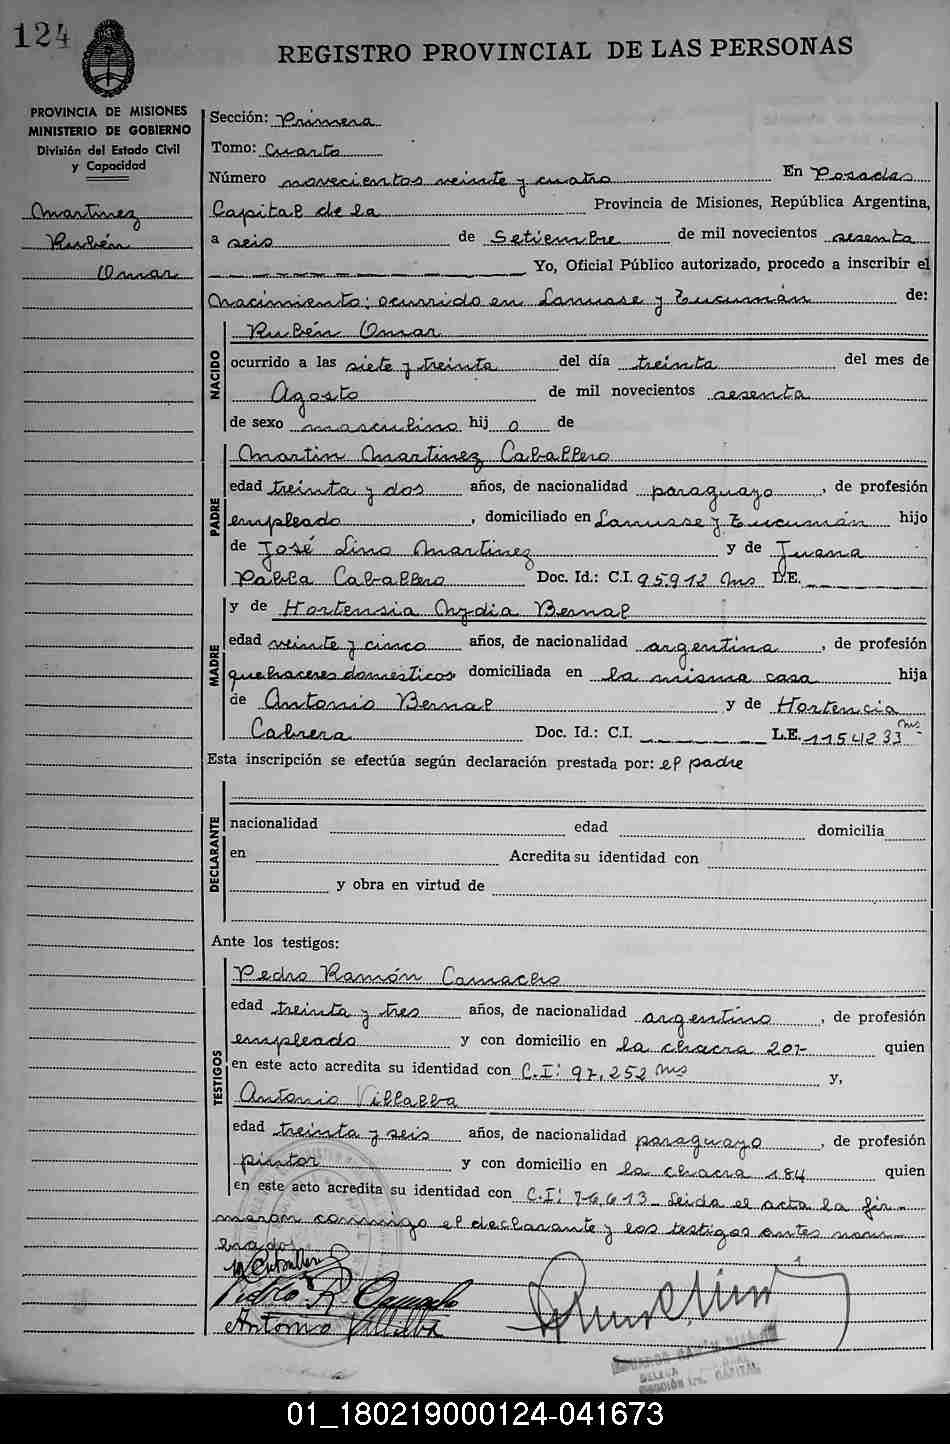 124
REGISTRO PROVINCIAL DE LAS PERSONAS
PROVINCIA DE MISIONES
MINISTERIO DE GOBIERNO
División del Estado Civil
y Capacidad
Martinez
Rubén
Omar
Sección: Primera
Tomo: Cuarto
Número novecientos veinte y cuatro En Posadas
Capital de la Provincia de Misiones, República Argentina,
a seis de Setiembre de mil novecientos sesenta
Yo, Oficial Público autorizado, procedo a inscribir el
Nacimiento: ocurrido en Lanusse y Tucumán de:
NACIDO
Rubén Omar
ocurrido a las siete y treinta del día treinta del mes de
Agosto de mil novecientos sesenta
de sexo masculino hij o de
PADRE
Martin Martinez Caballero
edad treinta y dos años, de nacionalidad paraguayo, de profesión
empleado, domiciliado en Lanusse y Tucumán hijo
de José Lino Martinez y de Juana
Pabla Caballero Doc. Id.: C.I. 95.912 Ms L.E.
MADRE
y de Hortensia Nydia Bernal
edad veinte y cinco años, de nacionalidad argentina, de profesión
quehaceres domesticos domiciliada en la misma casa hija
de Antonio Bernal y de Hortencia
Cabrera Doc. Id.: C.I. L.E. 1154233 Ms
Esta inscripción se efectúa según declaración prestada por: el padre
DECLARANTE
nacionalidad edad domicilia
en Acredita su identidad con
y obra en virtud de
Ante los testigos:
TESTIGOS
Pedro Ramón Camacho
edad treinta y tres años, de nacionalidad argentino, de profesión
empleado y con domicilio en la chacra 201- quien
en este acto acredita su identidad con C.I: 97,252 Ms y,
Antonio Villalba
edad treinta y seis años, de nacionalidad paraguayo, de profesión
pintor y con domicilio en la chacra 184 quien
en este acto acredita su identidad con C.I: 76,613- Leida el acta la fir-
maron conmigo el declarante y los testigos antes nom-
brados
Pedro R Camacho
Antonio Villalba
CAPITAL
01_180219000124-041673